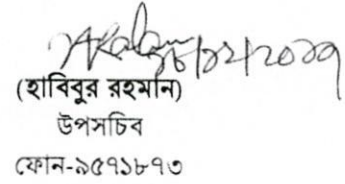 (হাবিবুর রহমান)
উপসচিব
ফোন-৯৫৭১৮৭৩